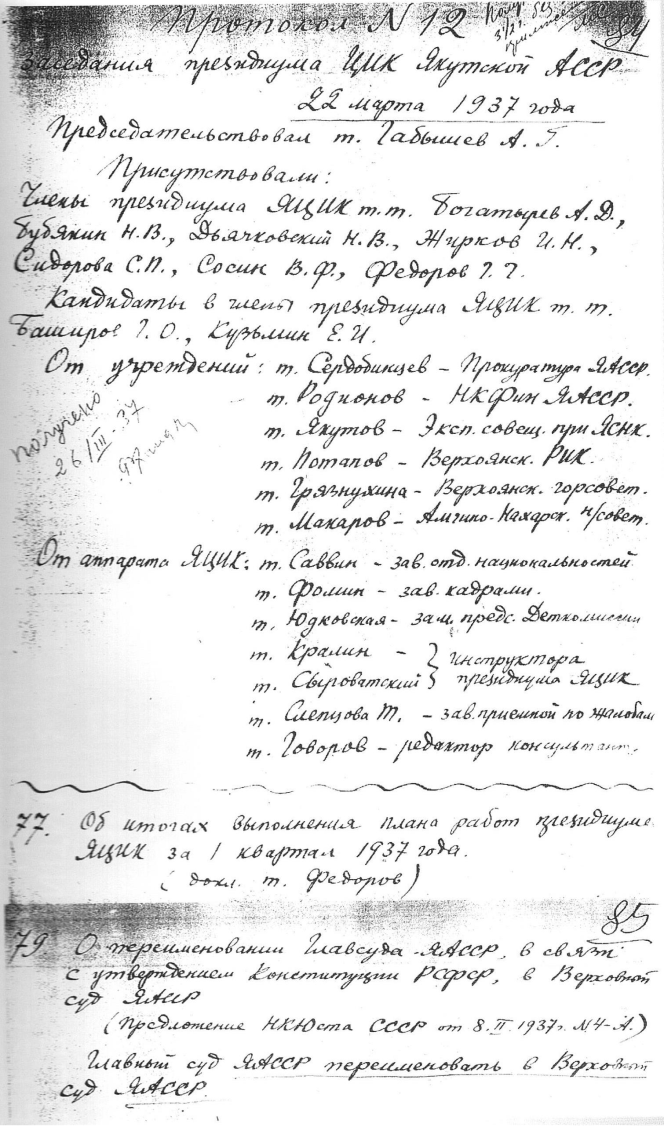 Протокол N 12
84
заседания президиума ЦИК Якутской АССР
22 марта 1937 года
Председательствовал т. Габышев А. Г.
Присутствовали:
Члены президиума ЯЦИК т.т. Богатырев А.Д.,
Бубякин Н.В., Дьячковский Н.В., Жирков И.Н.,
Сидорова С.П., Сосин В.Ф., Федоров
Кандидаты в члены президиума ЯЦИК т. т.
Баширов Г.О., Кузьмин Е.И.
От учреждений: т. Сердобинцев – Прокуратура ЯАССР.
т. Родионов – НКФин ЯАССР.
т. Якутов – Эк. совещ. при ЯСНК.
т. Потапов – Верхоянск. РИК.
т. Грязнухина – Верхоянск. горсовет.
т. Макаров – н/совет.
получено
26/III 37
От аппарата ЯЦИК: т. Саввин – зав. отд. национальностей
т. Фомин – зав. кадрами.
т. Юдковская – зам. предс. Деткомиссии
т. Кралин – } инструктора
т. Сыроватский } президиума ЯЦИК
т. Слепцова Т. – зав. приемной по жалобам
т. Говоров – редактор консультант.
77. Об итогах выполнения плана работ президиума
ЯЦИК за 1 квартал 1937 года.
(докл. т. Федоров)
85
79 О переименовании Главсуда ЯАССР, в связи
с утверждением Конституции РСФСР, в Верховный
суд ЯАССР
(Предложение НКЮста СССР от 8.II.1937г. N4-А.)
Главный суд ЯАССР переименовать в Верховный
суд ЯАССР.